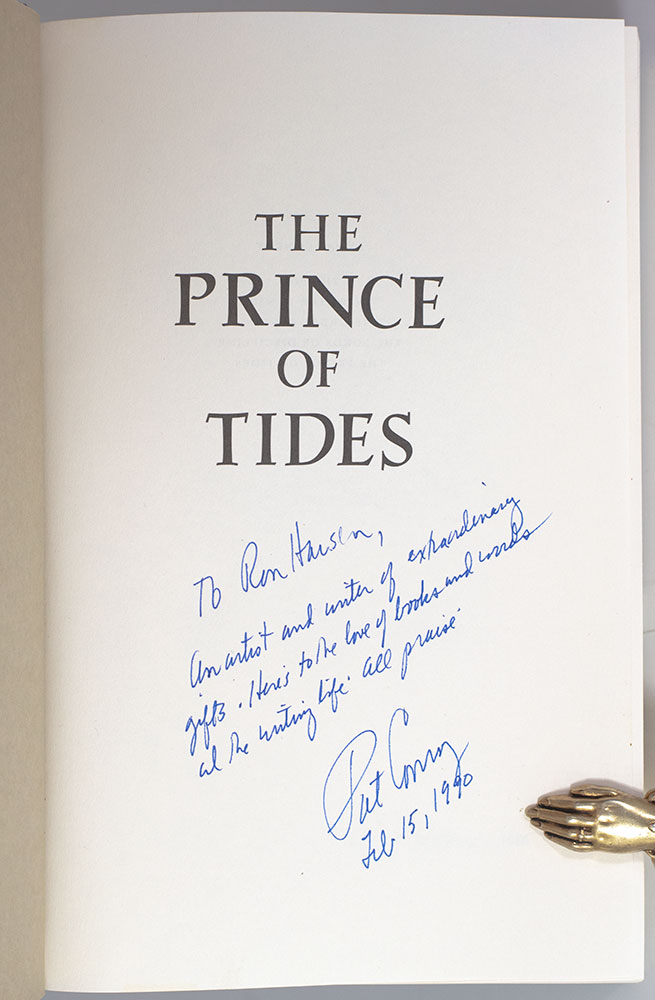 THE
PRINCE
OF
TIDES
To Ron Hansen,
An artist and writer of extraordinary
gifts. Here's to the love of books and words
and the writing life. All praise.
Pat Conroy
Feb 15, 1990